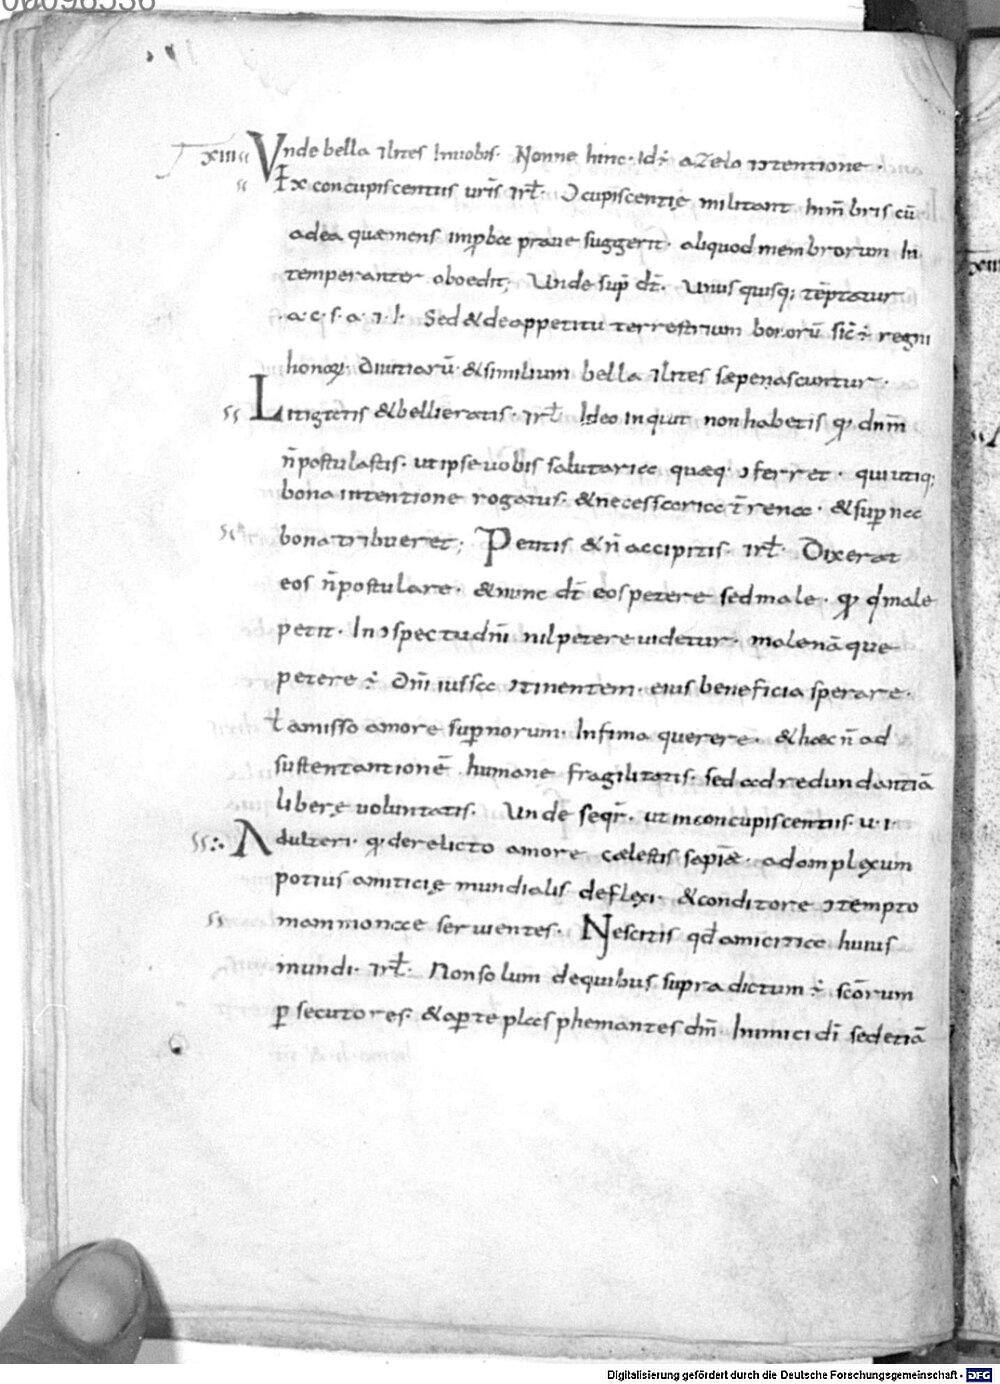 00096536
XIII Vnde bella & lites In uobis· Nonne hinc· Id ÷ a zelo &
Ex concupiscentiis uris
adea quæ mens improbæ praue suggerit· aliquod membrorum In
temperanter oboedit; Unde sup dt· Unus quisq; teptatur
·a·c·s·a·&·l· Sed & de appetitu terrestrium bonorū sic ÷ regni
honoꝝ· diuitiarū & similium bella & lites sæpe nascuntur·
Litigatis & belligeratis· Ideo inquit non habetis dnm
n̄ postulastis· ut ipse uobis salutaria quæq· ɔferret· qui utiq;
bona intentione rogatus· & necessaria t̄rena· & sup na
bona tribueret; Petitis & n̄ accipitis· Dixerat
eos n̄ postulare· & nunc dt̄ eos petere sed male· male
petit· In ɔspectu dnī nil petere uidetur· male nāque
petere ÷ dnī iussa ɔtinentem· eius beneficia sperare·
ł amisso amore supnorum· Infima querere· & hæc n̄ ad
sustentationē humane fragilitatis· sed ad redundantiā
liberę uoluntatis· Unde seqr̄· ut in concupiscentiis· u·i·
Adulteri· derelicto amore cælestis sapiæ· ad amplexum
potius amiticię mundialis deflexi· & conditore ɔtempto
mammonææ seruientes· Nescitis qd amicitia huius
mundi· Non solum de quibus supra dictum ÷ scōrum
ꝑsecutores· & aperte plasphemantes dnm̄· Inimici dī sed etiā
Digitalisierung gefördert durch die Deutsche Forschungsgemeinschaft - DFG